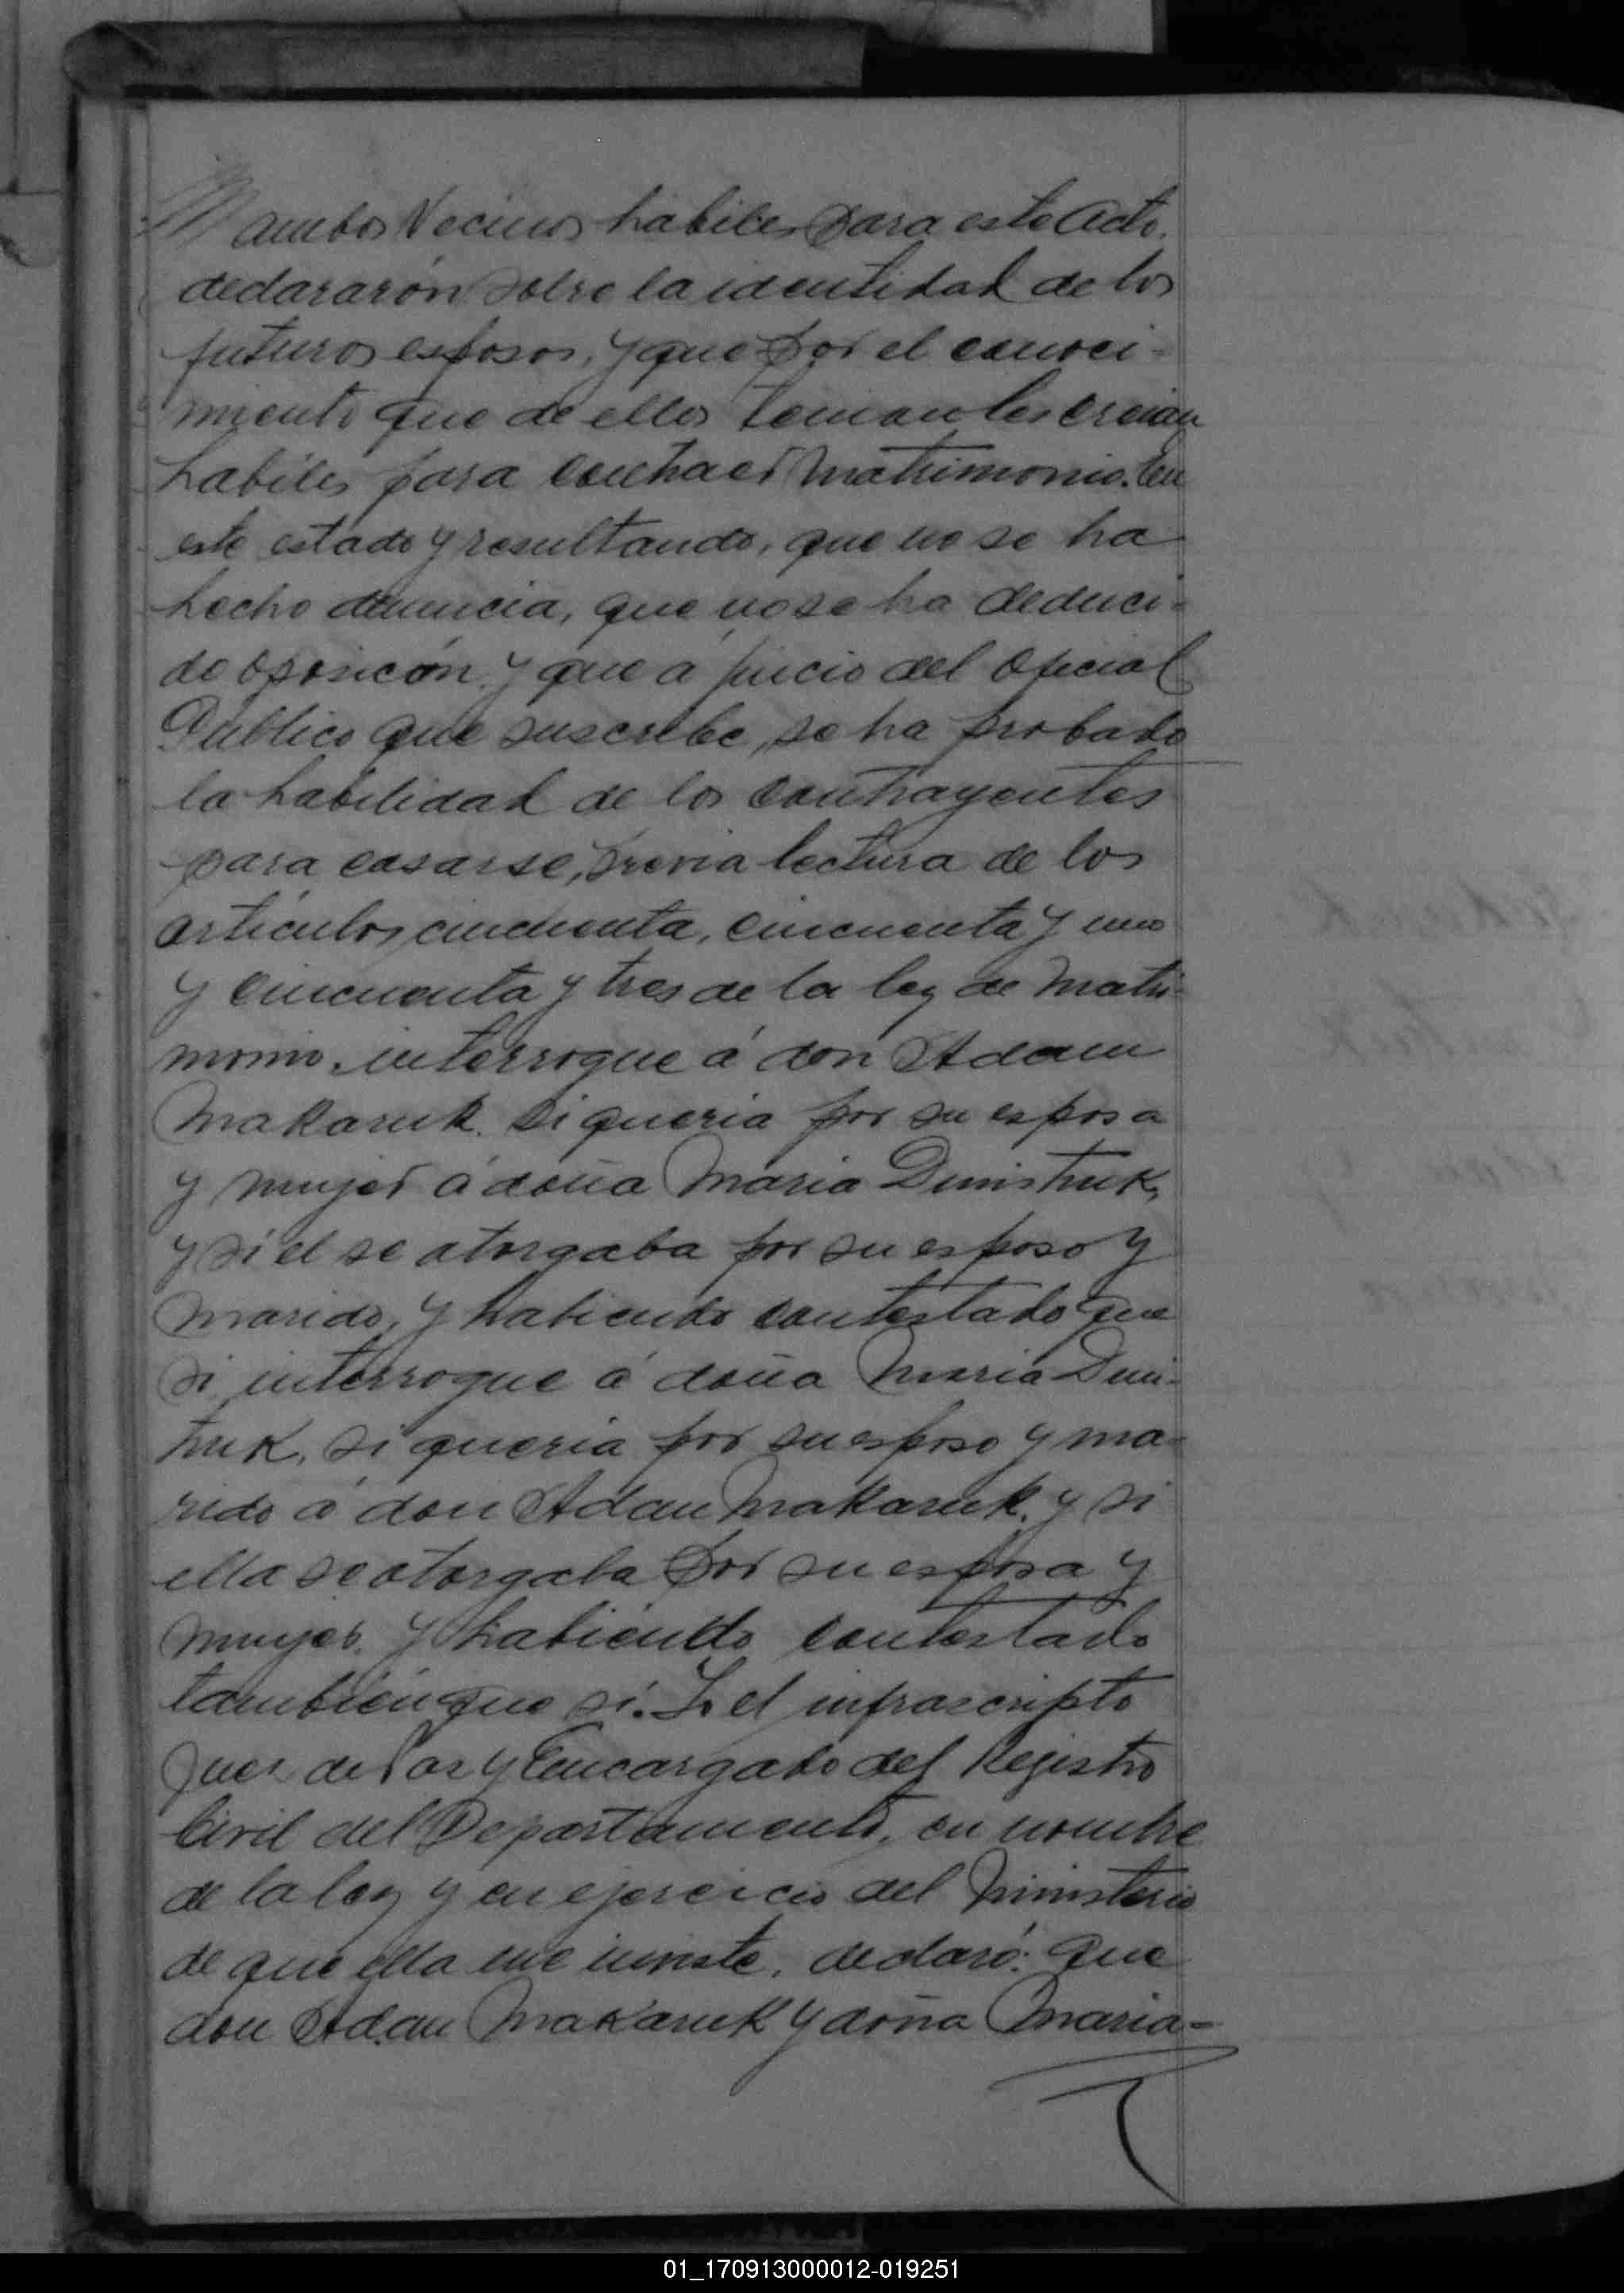 ambos Vecinos habiles para este Acto.
declararón sobre la identidad de los
futuros esposos, y que por el conoci-
miento que de ellos tenian les creian
habiles para contraer Matrimonio. En
este estado y resultando, que no se ha
hecho denuncia, que no se ha deduci-
do oposicón y que a juicio del Oficial
Público que suscribe, se ha probado
la habilidad de los contrayentes
para casarse, previa lectura de los
articulos cincuenta, cincuenta y uno
y cincuenta y tres de la ley de Matri-
monio. interrogue á don Adam
Makaruk. si queria por su esposa
y mujer á doña Maria Dimistruk,
y si el se otorgaba por su esposo y
marido, y habiendo contestado que
si interrogue á doña Maria Dmi-
truk, si queria por su esposo y ma-
rido á don Adan Makaruk. y si
ella se otorgaba por su esposa y
mujer. y habiendo contestado
también que si. Yo el infrascripto
Juez de Paz y Encargado del Registro
Civil del Departamento, en nombre
de la ley y en ejercicio del Ministerio
de que ella me inviste, declaró: que
don Adan Makaruk y doña Maria-
01_170913000012-019251